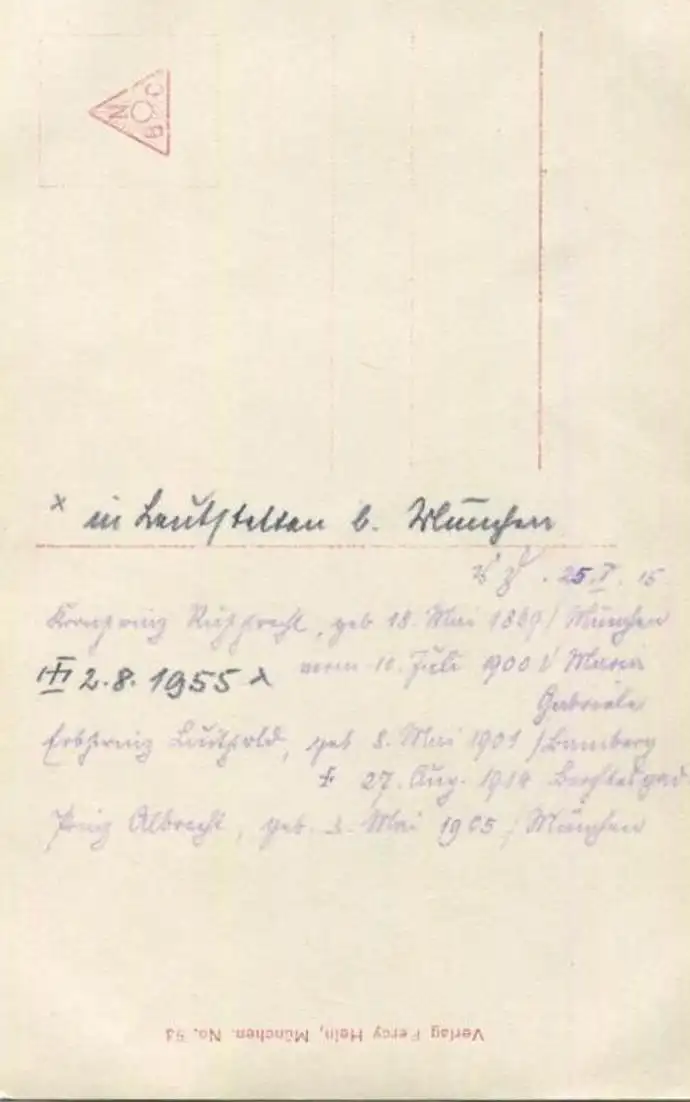 NBC
x in Leutstetten b. München
25. V. 15
Kronprinz Rupprecht, geb 18. Mai 1869 / München
2.8.1955 x verm 10. Juli 900 / Maria
Gabriele
Erbprinz Luitpold, geb 8. Mai 1901 / Bamberg
† 27. Aug. 1914 Berchtesgad
Prinz Albrecht, geb. 3. Mai 1905 / München
Verlag Percy Hein, München. No. 53